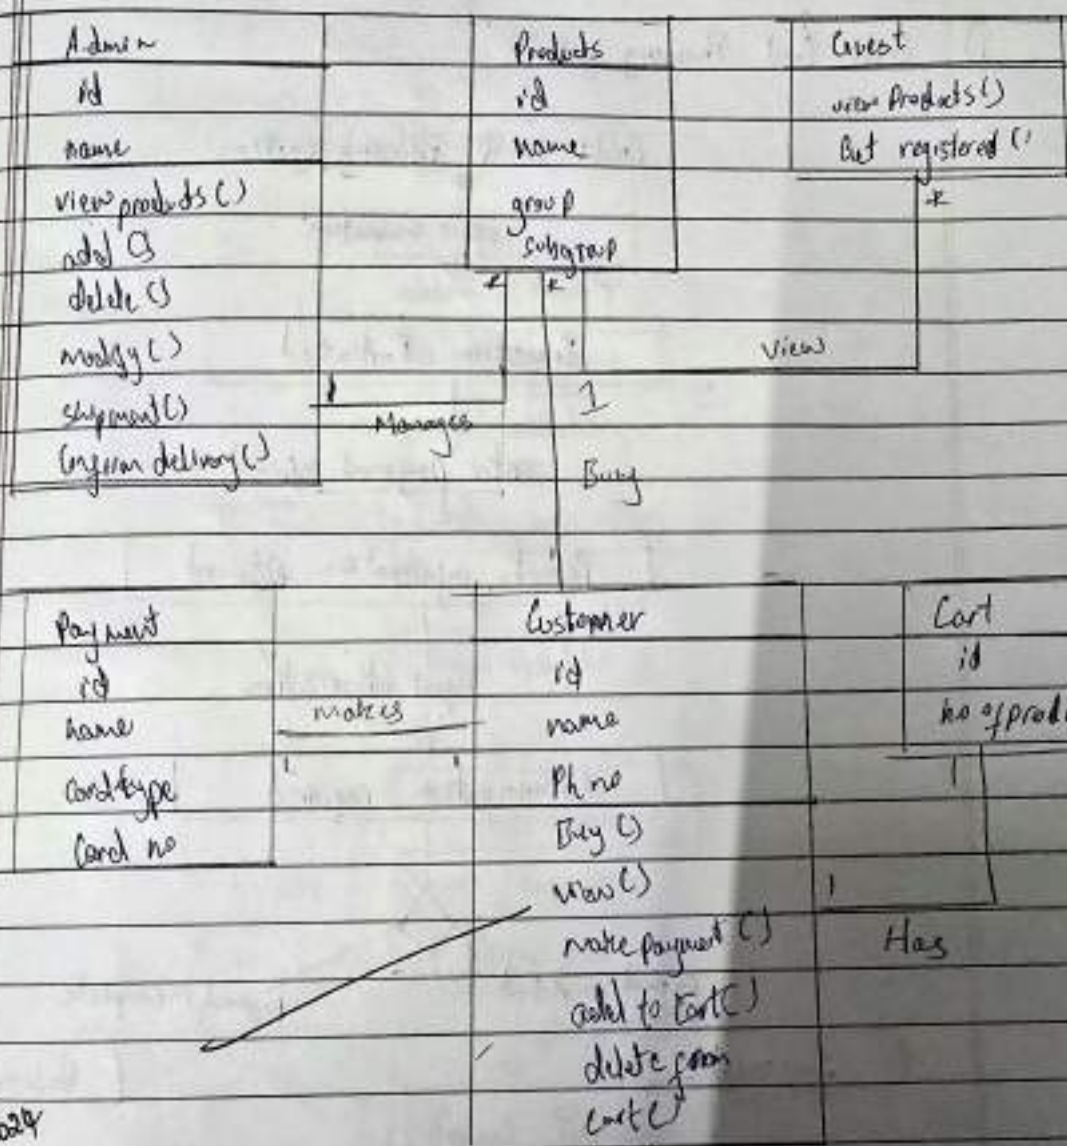 Admin
id
name
view products()
add()
delete()
modify()
shipment()
Confirm delivery()
Products
id
name
group
subgroup
Guest
view Products()
Get registered()
*
*
*
View
1
Manages
1
Buy
Payment
id
name
Card type
Card no
makes
1
1
Customer
id
name
Ph no
Buy()
view()
make payment()
add to cart()
delete from
cart()
Cart
id
no of prod
1
1
Has